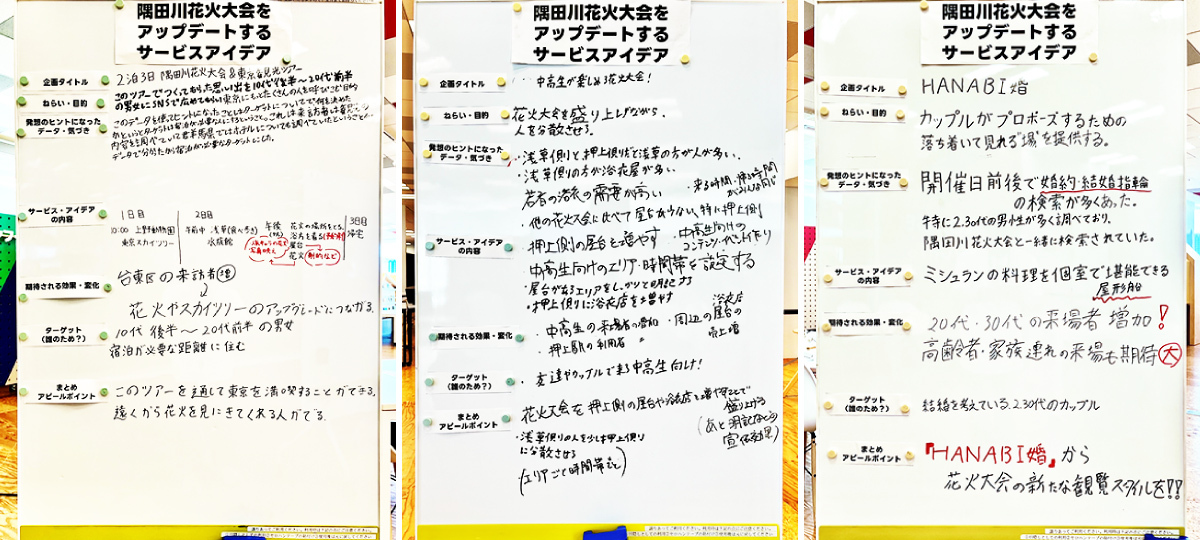 隅田川花火大会を
アップデートする
サービスアイデア
企画タイトル
2泊3日 隅田川花火大会&東京観光ツアー
ねらい・目的
このツアーでつくってもらった思い出を10代後半〜20代前半
の男女にSNSで広めてもらい東京にもっとたくさんの人を呼びこむ目的
発想のヒントになった
データ・気づき
このデータを使ってヒントになったことはターゲットについてで何を決めた
かというとターゲットは宿泊が必要な人にするということ。これは来訪者は
内容を調べていて群馬県ではホテルについても調べていたということ
データで分かったから宿泊が必要なターゲットにした。
サービス・アイデア
の内容
1日目
10:00 上野動物園
東京スカイツリー
2日目
午前中 浅草(食べ歩き)
水族館
午後
花火の場所をとる。
浴衣を着る
屋台
花火
3日目
帰宅
期待される効果・変化
台東区の来訪者 増
↓
花火やスカイツリーのアップグレードにつながる。
ターゲット
(誰のため?)
10代後半〜20代前半の男女
宿泊が必要な距離に住む
まとめ
アピールポイント
このツアーを通して東京を満喫することができる。
遠くから花火を見にきてくれる人がでる。
隅田川花火大会を
アップデートする
サービスアイデア
企画タイトル
中高生が楽しめる花火大会!
ねらい・目的
花火大会を盛り上げながら、
人を分散させる。
発想のヒントになった
データ・気づき
・浅草側と押上側だと浅草の方が人が多い、
・浅草側の方が浴衣屋が多い、
若者の浴衣の需要が高い
・来る時間・帰る時間
がみんな同じ
他の花火大会に比べて屋台が少ない、特に押上側
サービス・アイデア
の内容
・押上側の屋台を増やす
・中高生向けの
コンテンツ・イベント作り
中高生向けのエリア・時間帯を設定する
・屋台が出るエリアをしっかりと明記する
・押上側に浴衣店を増やす
期待される効果・変化
・中高生の来場者の増加
・押上駅の利用者 〃
・周辺の屋台の
浴衣店
売上増
ターゲット
(誰のため?)
・友達やカップルで来る中高生向け!
まとめ
アピールポイント
花火大会を押上側の屋台や浴衣店を増やすことで
盛り上げる
・浅草側の人を少し押上側
に分散させる
(エリアごと時間帯など)
(あと明記などの
宣伝効果)
隅田川花火大会を
アップデートする
サービスアイデア
企画タイトル
HANABI婚
ねらい・目的
カップルがプロポーズするための
落ち着いて見れる"場"を提供する。
発想のヒントになった
データ・気づき
開催日前後で婚約・結婚指輪
の検索が多くあった。
特に2.30代の男性が多く調べており、
隅田川花火大会と一緒に検索されていた。
サービス・アイデア
の内容
ミシュランの料理を個室で堪能できる
屋形船
期待される効果・変化
20代・30代の来場者増加!
高齢者・家族連れの来場も期待大
ターゲット
(誰のため?)
結婚を考えている2.30代のカップル
まとめ
アピールポイント
『HANABI婚』から
花火大会の新たな観覧スタイルを!!